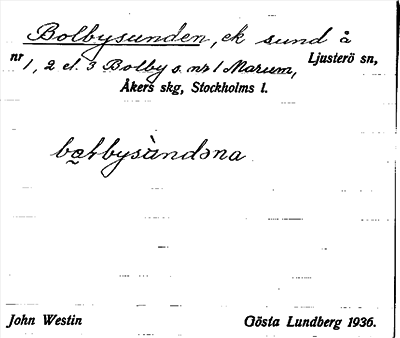 Bolbysunden, ek sund å
nr 1, 2 el. 3 Bolby s. nr 1 Marum, Ljusterö sn,
Åkers skg, Stockholms l.
bo̜ɫbysùndəna
John Westin Gösta Lundberg 1936.